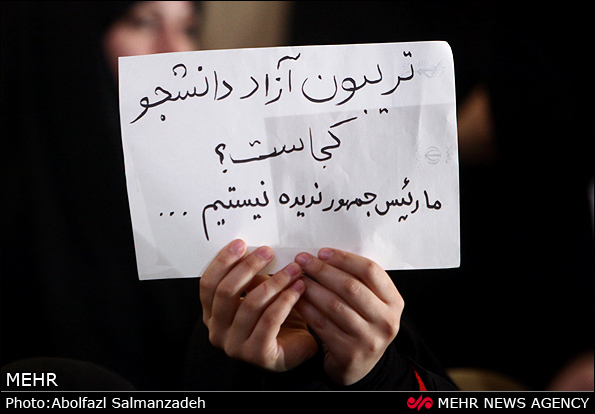 تریبون آزاد دانشجو
کجاست؟
ما رئیس جمهور ندیده نیستیم ...
MEHR
Photo:Abolfazl Salmanzadeh
MEHR NEWS AGENCY